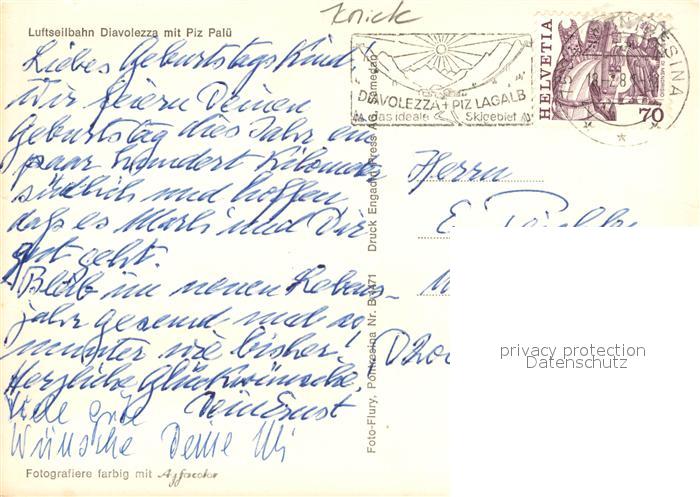 Knick
Luftseilbahn Diavolezza mit Piz Palü
Liebes Geburtstags Kind!
Wir feiern Deinen
Geburtstag dies Jahr ein
paar hundert Kilometer
südlich und hoffen
daß es Marli und Dir
gut geht.
Bleib im neuen Lebens-
jahr gesund und so
munter wie bisher!
Herzliche Glückwünsche,
Dein Ernst
Viele gute
Wünsche Deine Uli
Fotografiere farbig mit Agfacolor
Foto-Flury, Pontresina Nr. B 1471 Druck Engadin Press AG, Samedan
DIAVOLEZZA + PIZ LAGALB
das ideale Skigebiet
HELVETIA
70
PONTRESINA
Herrn
E.
privacy protection
Datenschutz